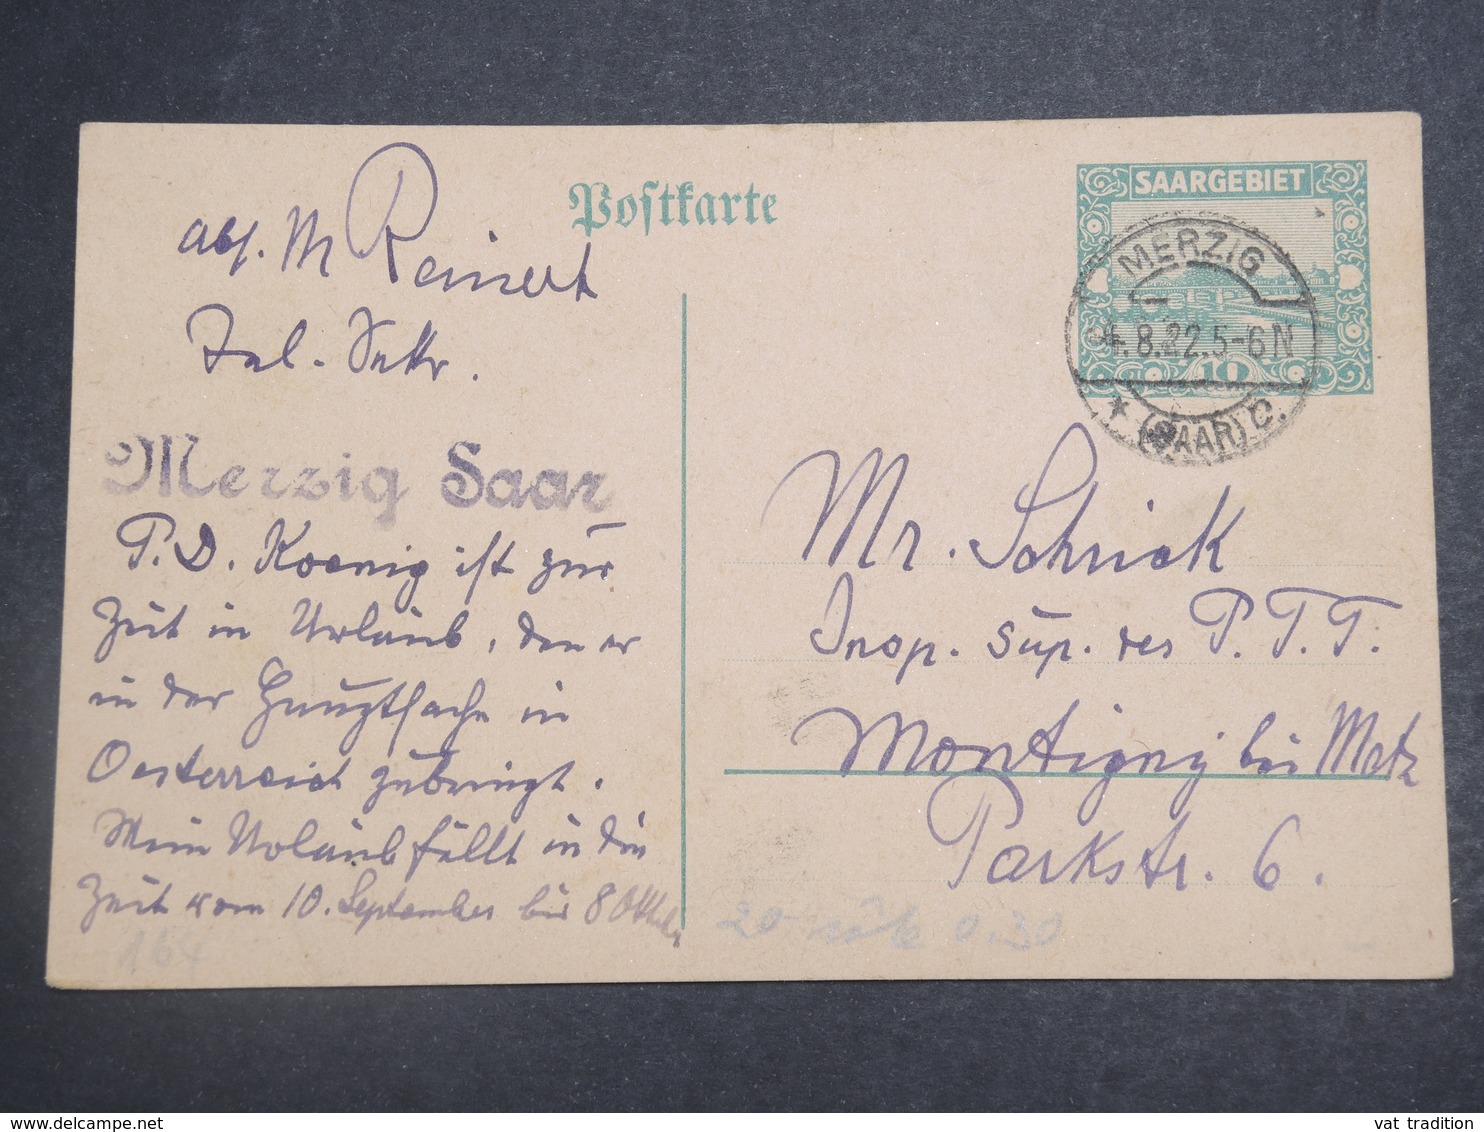 Postkarte
SAARGEBIET
10
MERZIG
4.8.22.5-6N
★ (SAAR) c.
abs. M Reinert
Tel. Sekr.
Merzig Saar
P. D. Koenig ist zur
Zeit in Urlaub, den er
in der Hauptsache in
Oesterreich zubringt.
Mein Urlaub fällt in die
Zeit vom 10. September bis 8 Oktober
164
Mr. Schrick
Insp. Sup. des P.T.T.
Montigny bei Metz
Parkstr. 6.
20 0.30
vat tradition